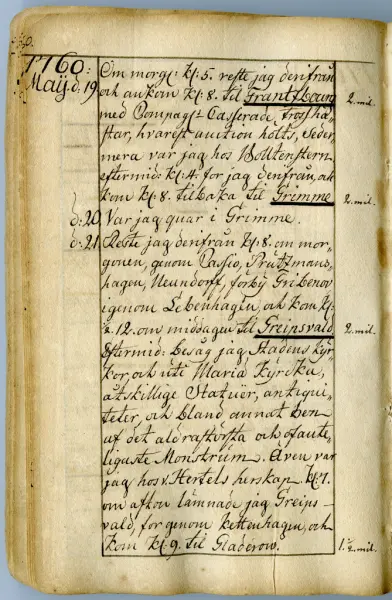 1760.
Maij d. 19. Om morg: kl: 5. reste jag derifrån
och ankom kl: 8. til Frantzbourg 2. mil.
med Compag: Casserade tross hä-
star, hvarest auction hölts, Seder-
mera var jag hos Woltenstern.
eftermid: kl: 4. for jag derifrån, och
kom kl: 8. tilbaka til Grimme 2. mil.
d: 20. Var jag quar i Grimme.
d: 21. Reste jag derifrån kl: 8. om mor-
gonen, genom Passio, Prützmans-
hagen, Neundorff, förbij Gribenov
igenom Lebenhagen, och kom kl:
12. om middagen til Greipsvald 2. mil.
Eftermid: besåg jag Stadens kyr-
kor, och uti Maria Kyrcka,
åtskillige Statuer, antiqui-
teter, och bland annat ben
af det aldrastörsta och ofante-
ligaste Monstrum. Även var
jag hos v. Hertels herskap. kl: 7.
om afton lämnade jag Greips-
vald, for genom kettenhagen, och
kom kl: 9. til Gladerow. 1. ½ mil.